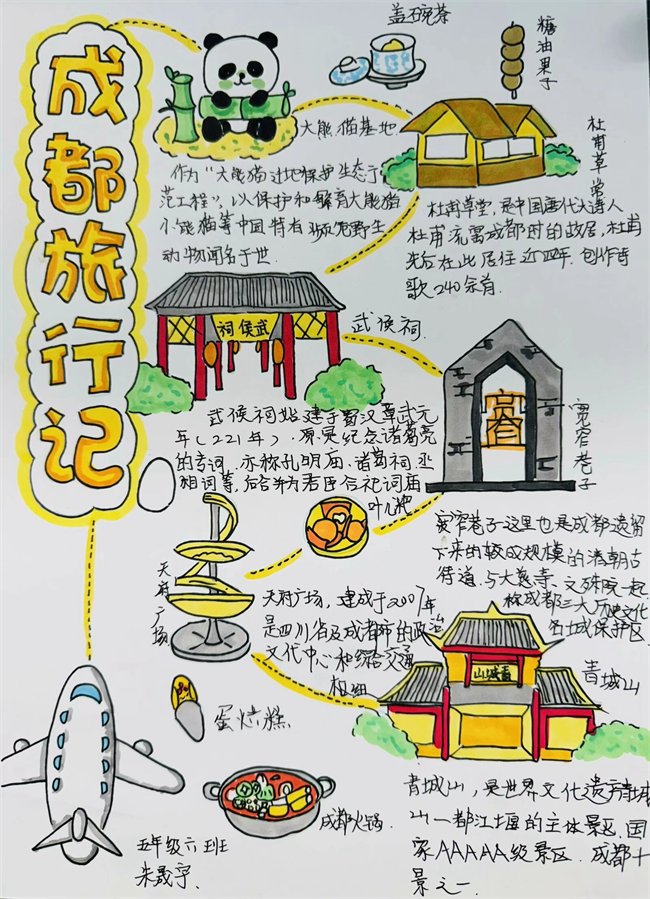 成都旅行记
盖碗茶
糖油果子
大熊猫基地
作为"大熊猫迁地保护生态示
范工程",以保护和繁育大熊猫
小熊猫等中国特有濒危野生
动物闻名于世.
杜甫草堂
杜甫草堂,是中国唐代大诗人
杜甫流寓成都时的故居,杜甫
先后在此居住近四年,创作诗
歌240余首.
武侯祠
武侯祠.
武侯祠始建于蜀汉章武元
年(221年),原是纪念诸葛亮
的专祠,亦称孔明庙、诸葛祠、丞
相祠等,后合并为君臣合祀祠庙
宽窄巷子
宽窄巷子这里也是成都遗留
下来的较成规模的清朝古
街道,与大慈寺、文殊院一起
称成都三大历史文化
名城保护区
叶儿粑
天府广场
天府广场,建成于2007年
是四川省及成都市的政治
文化中心和综合交通
枢纽
青城山
青城山
青城山,是世界文化遗产青城
山—都江堰的主体景区,国
家AAAAA级景区.成都十
景之一.
蛋烘糕
成都火锅.
五年级六班
朱晟宇.